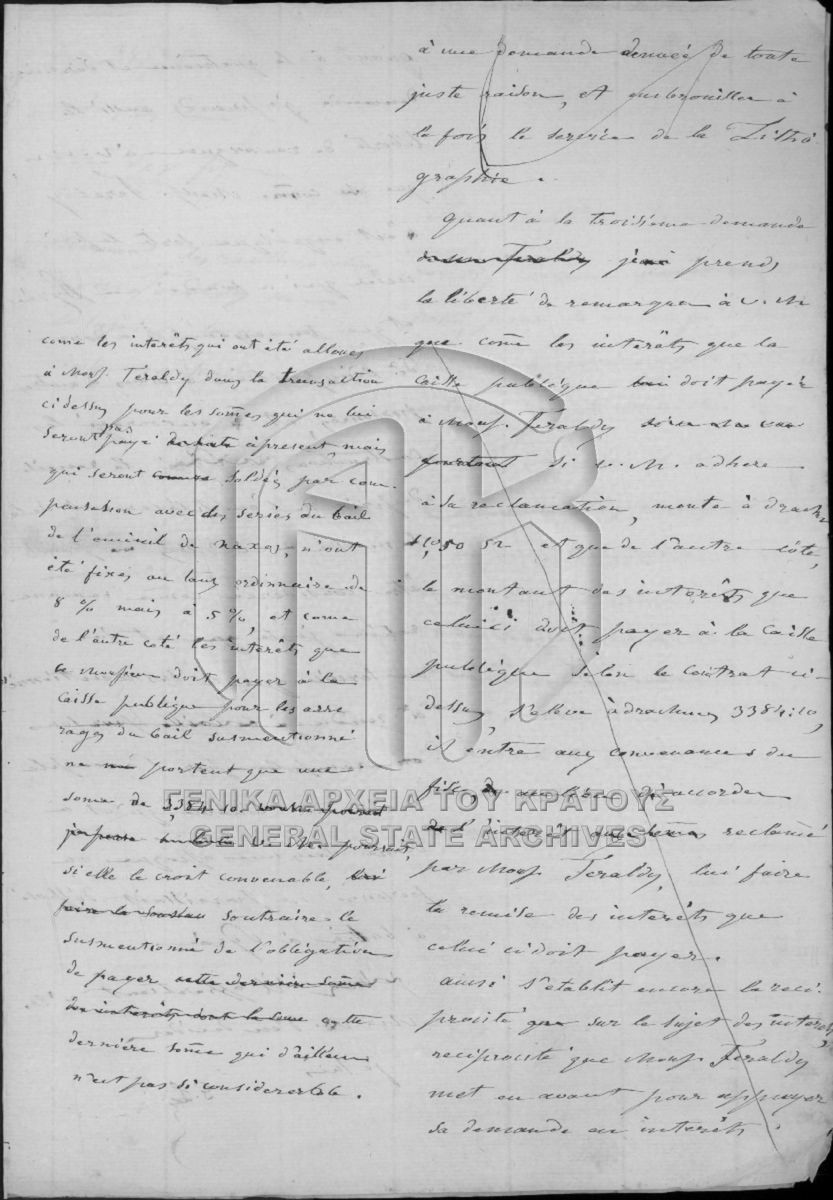 à une demande denuée de toute
juste raison, et embrouiller à
la fois le service de la Litho
graphie.
quant à la troisième demande
de Mr Feraldy je prends
la liberté de remarquer à V. M
que come les interêts que la
Caisse publique doit payer
à Mons. Feraldy
pourtant si V. M. adhere
à sa reclamation, monte à drachm
et que de l'autre côté,
le montant des interêts que
celuici doit payer à la Caisse
publique selon le contrat ci-
dessus, s'élève à drachmes 3384:10,
il entre aux convenances du
fisc, au lieu d'accorder
de l'interêt des somes reclamé
par Mons. Feraldy, lui faire
la remise des interêts que
celui ci doit payer.
ainsi s'etablit encore la reci-
procité que sur le sujet des interets,
reciprocité que Mons. Feraldy
met en avant pour appuyer
sa demande en interêts
come les interêts qui ont été alloues
à Mons. Feraldy dans la transaction
ci dessus pour les somes qui ne lui
seront pas payé à present, mais
qui seront soldés par com-
pensation avec des series du bail
de l'emeril de Naxos, n'ont
été fixés au taux ordinnaire de
8 % mais à 5 %, et come
de l'autre coté les interêts que
ce Monsieur doit payer à la
Caisse publique pour les arre
rages du bail susmentionné
ne portent que une
some de 3384.10
je pense V. M. pourrait,
si elle le croit convenable, lui
faire la soustrai soutraire le
susmentionné de l'obligation
de payer cette derniere some
des interêts dont la some cette
derniére some qui d'ailleurs
n'est pas si considererable.
ΓΕΝΙΚΑ ΑΡΧΕΙΑ ΤΟΥ ΚΡΑΤΟΥΣ
GENERAL STATE ARCHIVES